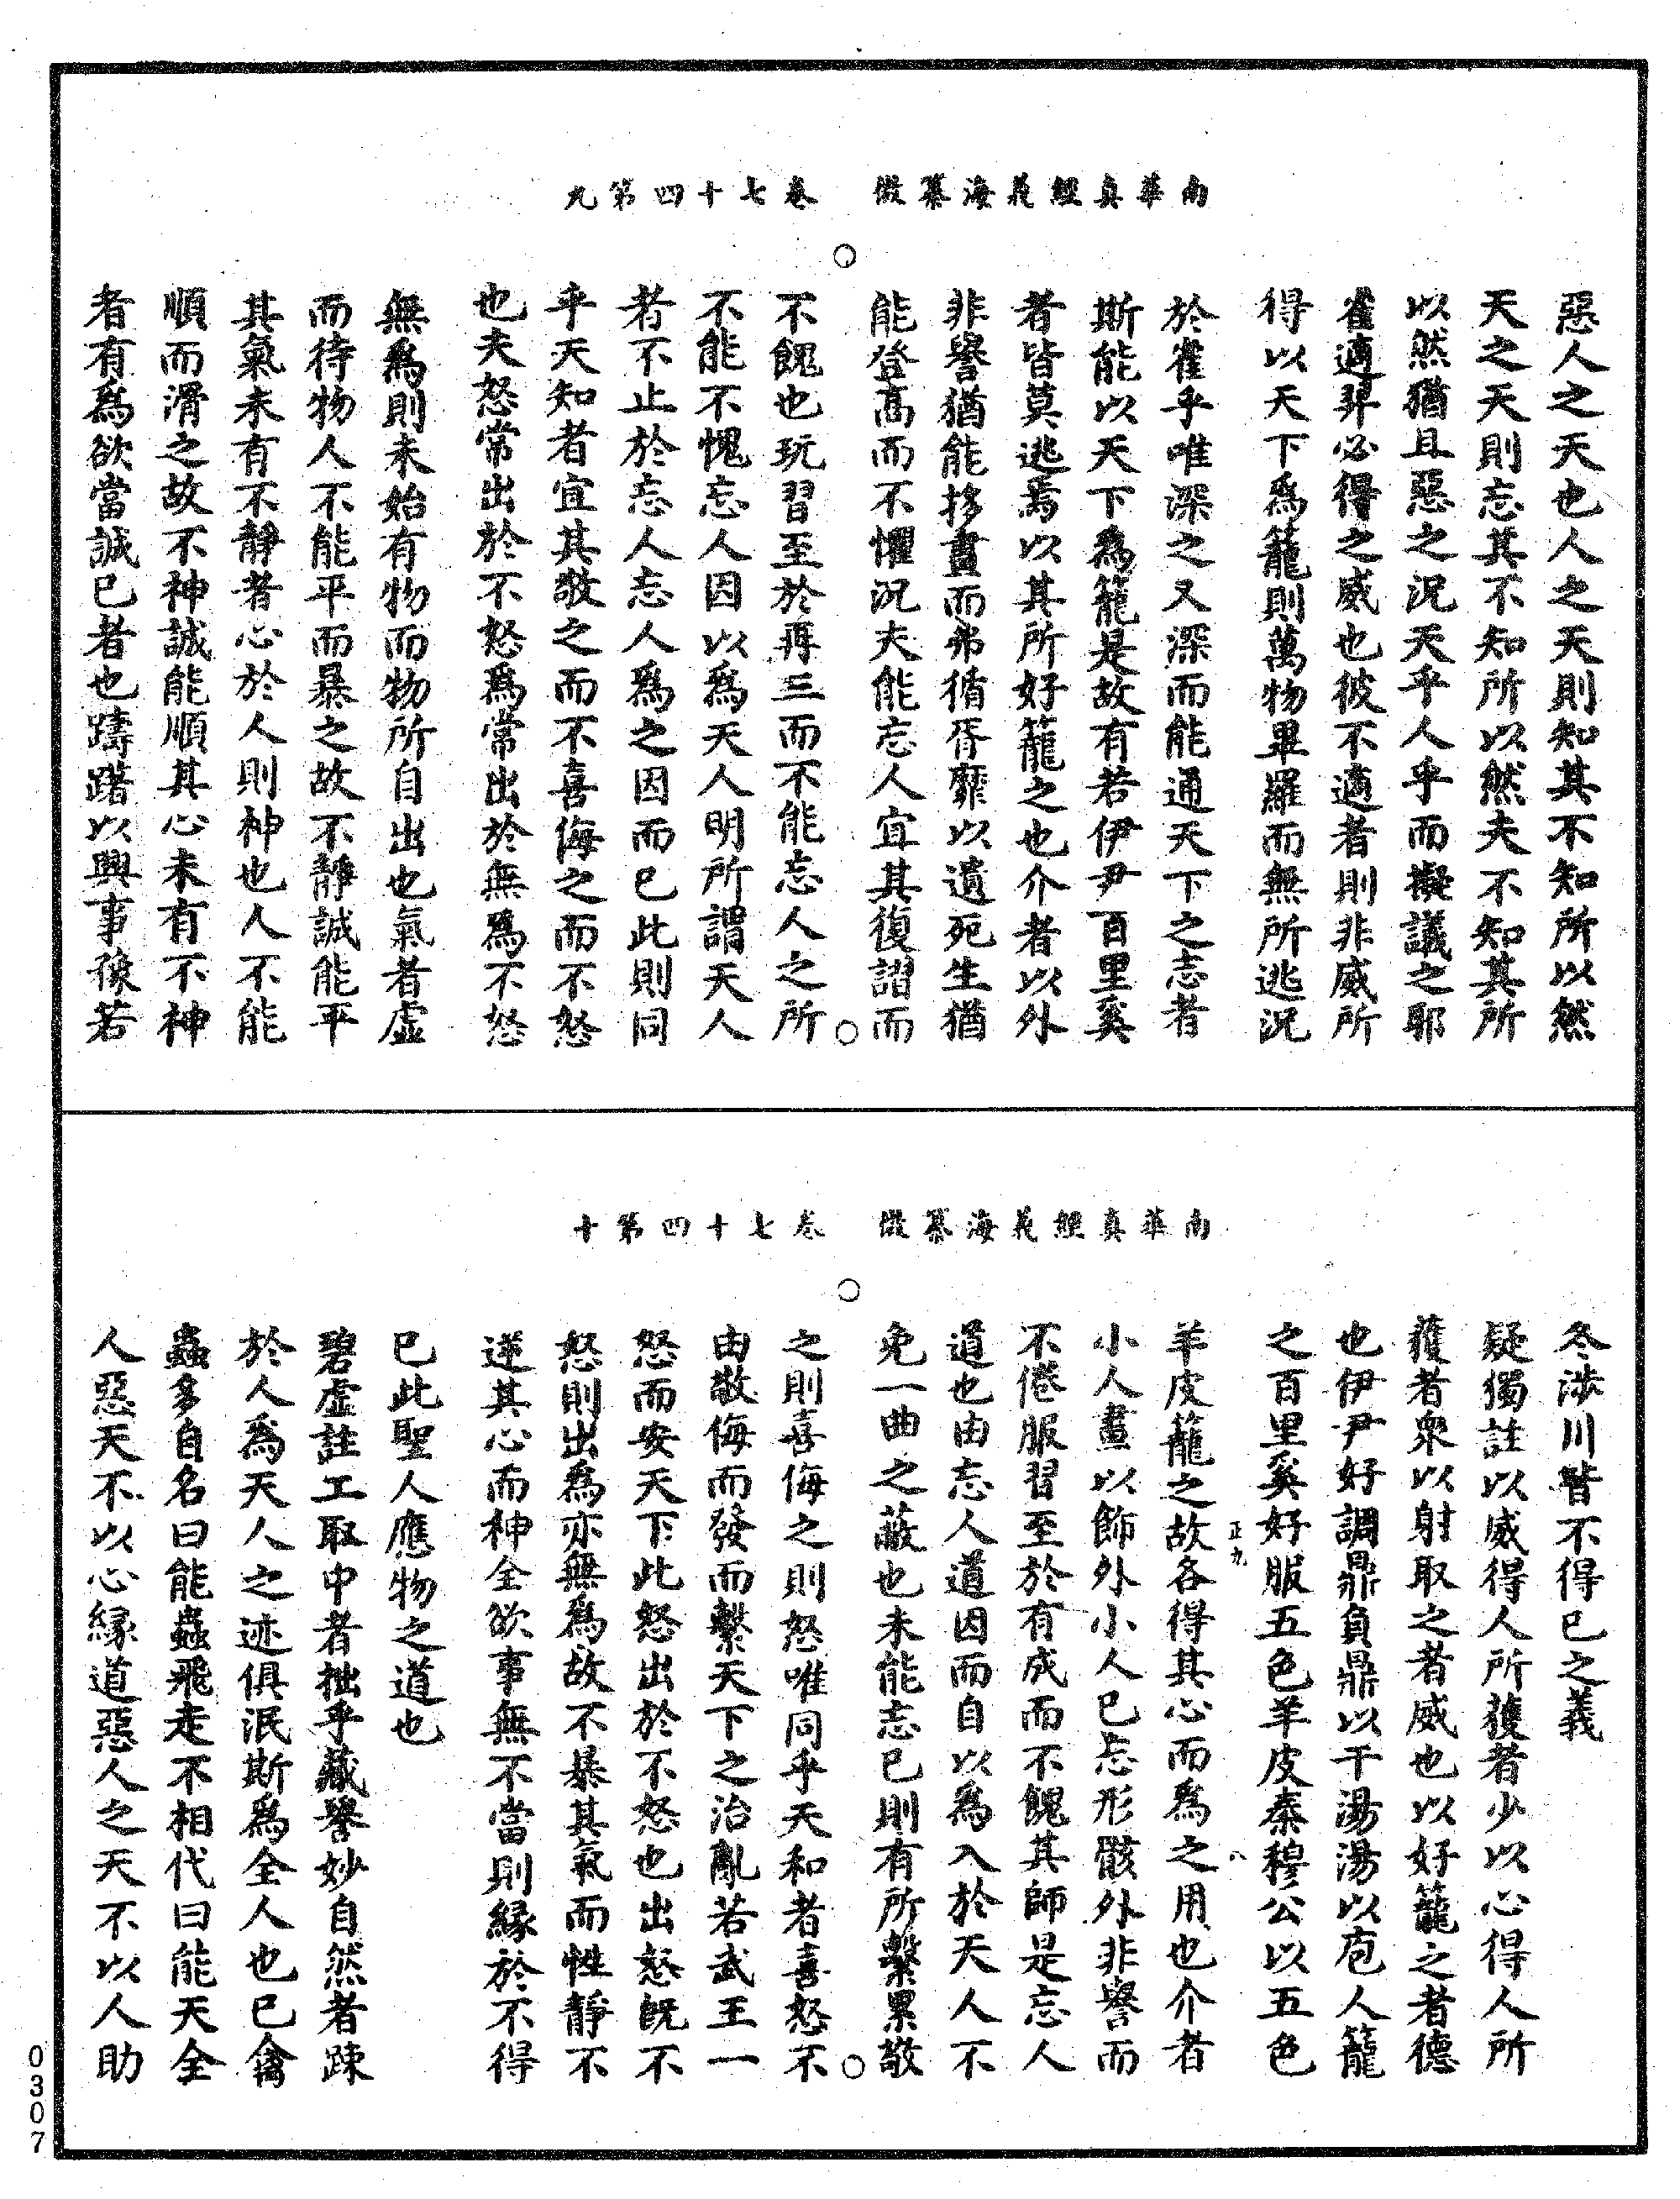 南華真經義海纂微　卷七十四第九
惡人之天也人之天則知其不知所以然
天之天則忘其不知所以然夫不知其所
以然猶且惡之況天乎人乎而擬議之耶
雀適羿必得之威也彼不適者則非威所
得以天下爲籠則萬物畢羅而無所逃況
於雀乎唯深之又深而能通天下之志者
斯能以天下爲籠是故有若伊尹百里奚
者皆莫逃焉以其所好籠之也介者以外
非譽猶能拸畫而弗循胥靡以遺死生猶
能登高而不懼況夫能忘人宜其復謵而
不餽也玩習至於再三而不能忘人之所
不能不愧忘人因以爲天人明所謂天人
者不止於忘人忘人爲之因而已此則同
乎天知者宜其敬之而不喜侮之而不怒
也夫怒常出於不怒爲常出於無爲不怒
無爲則未始有物而物所自出也氣者虛
而待物人不能平而暴之故不靜誠能平
其氣未有不靜者心於人則神也人不能
順而滑之故不神誠能順其心未有不神
者有爲欲當誠已者也躊躇以興事豫若
南華真經義海纂微　卷七十四第十
冬涉川皆不得已之義
疑獨註以威得人所獲者少以心得人所
獲者衆以射取之者威也以好籠之者德
也伊尹好調鼎負鼎以干湯湯以庖人籠
之百里奚好服五色羊皮秦穆公以五色
羊皮籠之故各得其心而爲之用也介者
小人畫以飾外小人已忘形骸外非譽而
不倦服習至於有成而不餽其師是忘人
道也由忘人道因而自以爲入於天人不
免一曲之蔽也未能忘已則有所繫累敬
之則喜侮之則怒唯同乎天和者喜怒不
由敬侮而發而繫天下之治亂若武王一
怒而安天下此怒出於不怒也出怒旣不
怒則出爲亦無爲故不暴其氣而性靜不
逆其心而神全欲事無不當則緣於不得
已此聖人應物之道也
碧虛註工取中者拙乎藏譽妙自然者踈
於人爲天人之迹俱泯斯爲全人也已禽
蟲多自名曰能蟲飛走不相代曰能天全
人惡天不以心緣道惡人之天不以人助
正九
八
0307